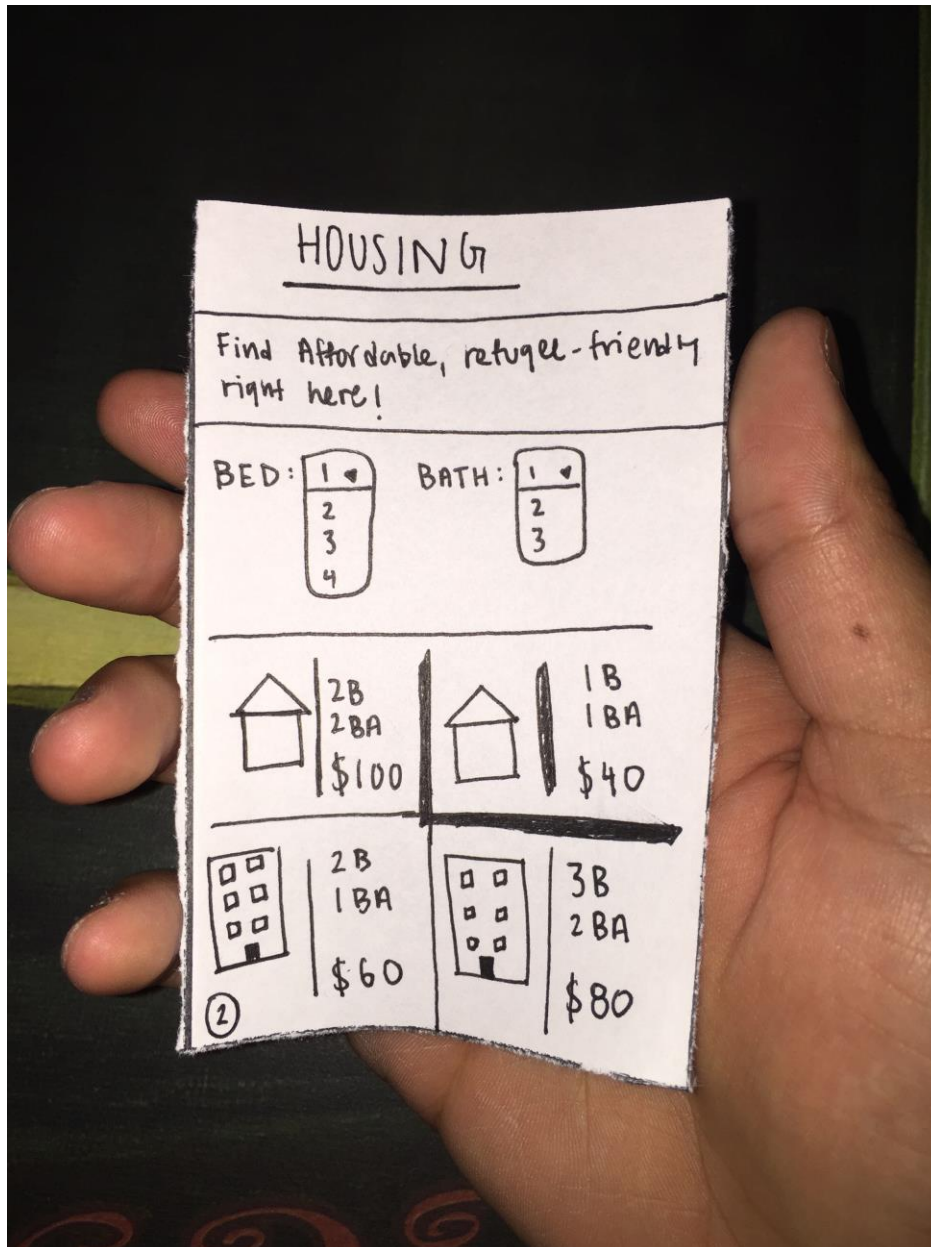 HOUSING
Find Affordable, refugee-friendly
right here!
BED: 1
2
3
4
BATH: 1
2
3
2B
2BA
$100
1B
1BA
$40
2B
1BA
$60
3B
2BA
$80
2